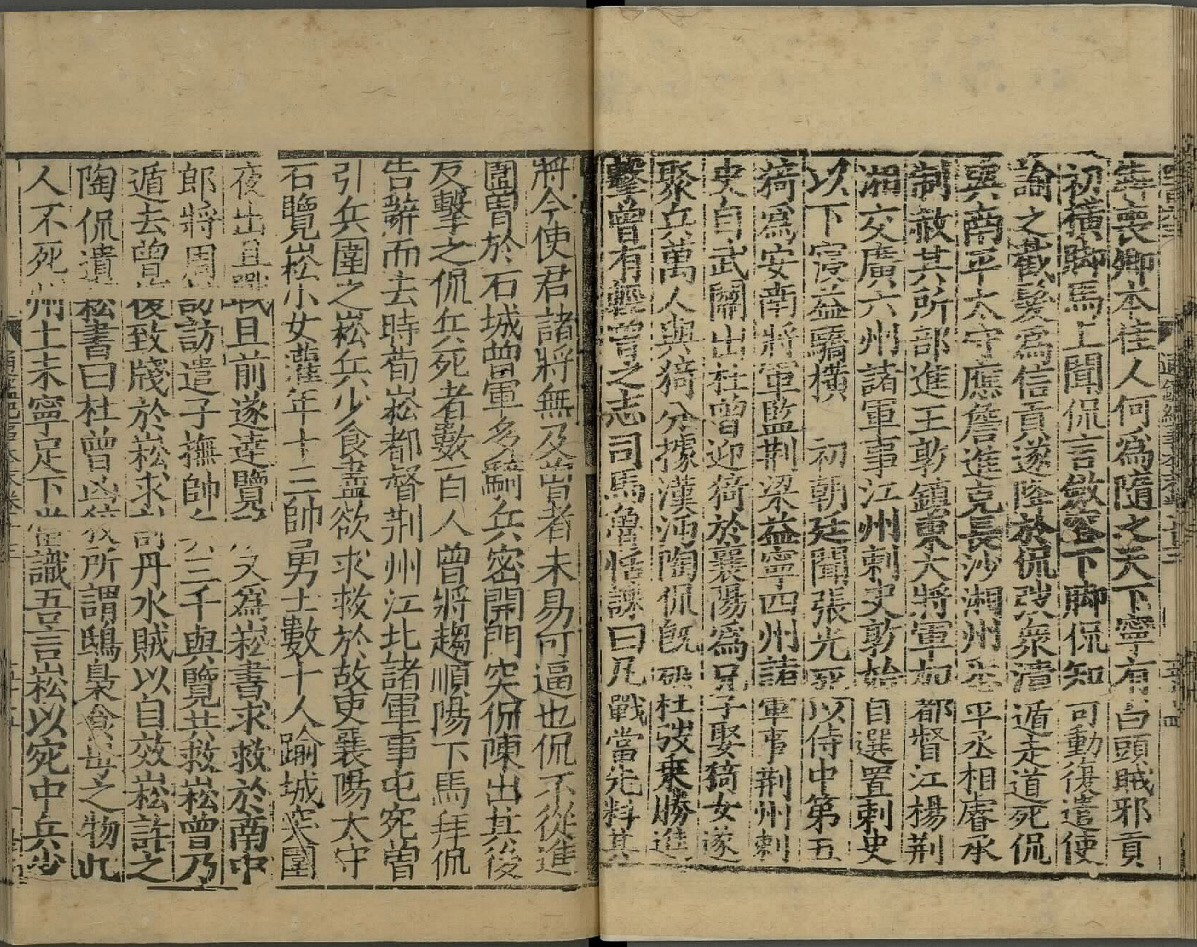 喪卿本佳人何為隨之天下寧有白頭賊邪貢
初橫脚馬上聞侃言斂容下脚侃知可動復遣使
諭之截髮為信貢遂降於侃弢衆潰遁走道死侃
與南平太守應詹進克長沙湘州悉平丞相睿承
制赦其所部進王敦鎮東大將軍加都督江楊荆
湘交廣六州諸軍事江州刺史敦始自選置刺史
以下寖益驕橫　初朝廷聞張光死以侍中第五
猗為安南將軍監荆梁益寧四州諸軍事荆州刺
史自武關出杜曾迎猗於襄陽為兄子娶猗女遂
聚兵萬人與猗分據漢沔陶侃旣破杜弢乘勝進
擊曾有輕曾之志司馬魯恬諫曰凡戰當先料其
將今使君諸將無及曾者未易可逼也侃不從進
圍曾於石城曾軍多騎兵密開門突侃陳出其後
反擊之侃兵死者數百人曾將趨順陽下馬拜侃
告辭而去時荀崧都督荆州江北諸軍事屯宛曾
引兵圍之崧兵少食盡欲求救於故吏襄陽太守
石覽崧小女灌年十三帥勇士數十人踰城突圍
夜出且戰且前遂達覽又為崧書求救於南中
郎將周訪訪遣子撫帥三千與覽共救崧曾乃
遁去曾後致牋於崧求討丹水賊以自效崧許之
陶侃遺崧書曰杜曾凶所謂鴟梟食母之物此
人不死州土未寧足下當識吾言崧以宛中兵少